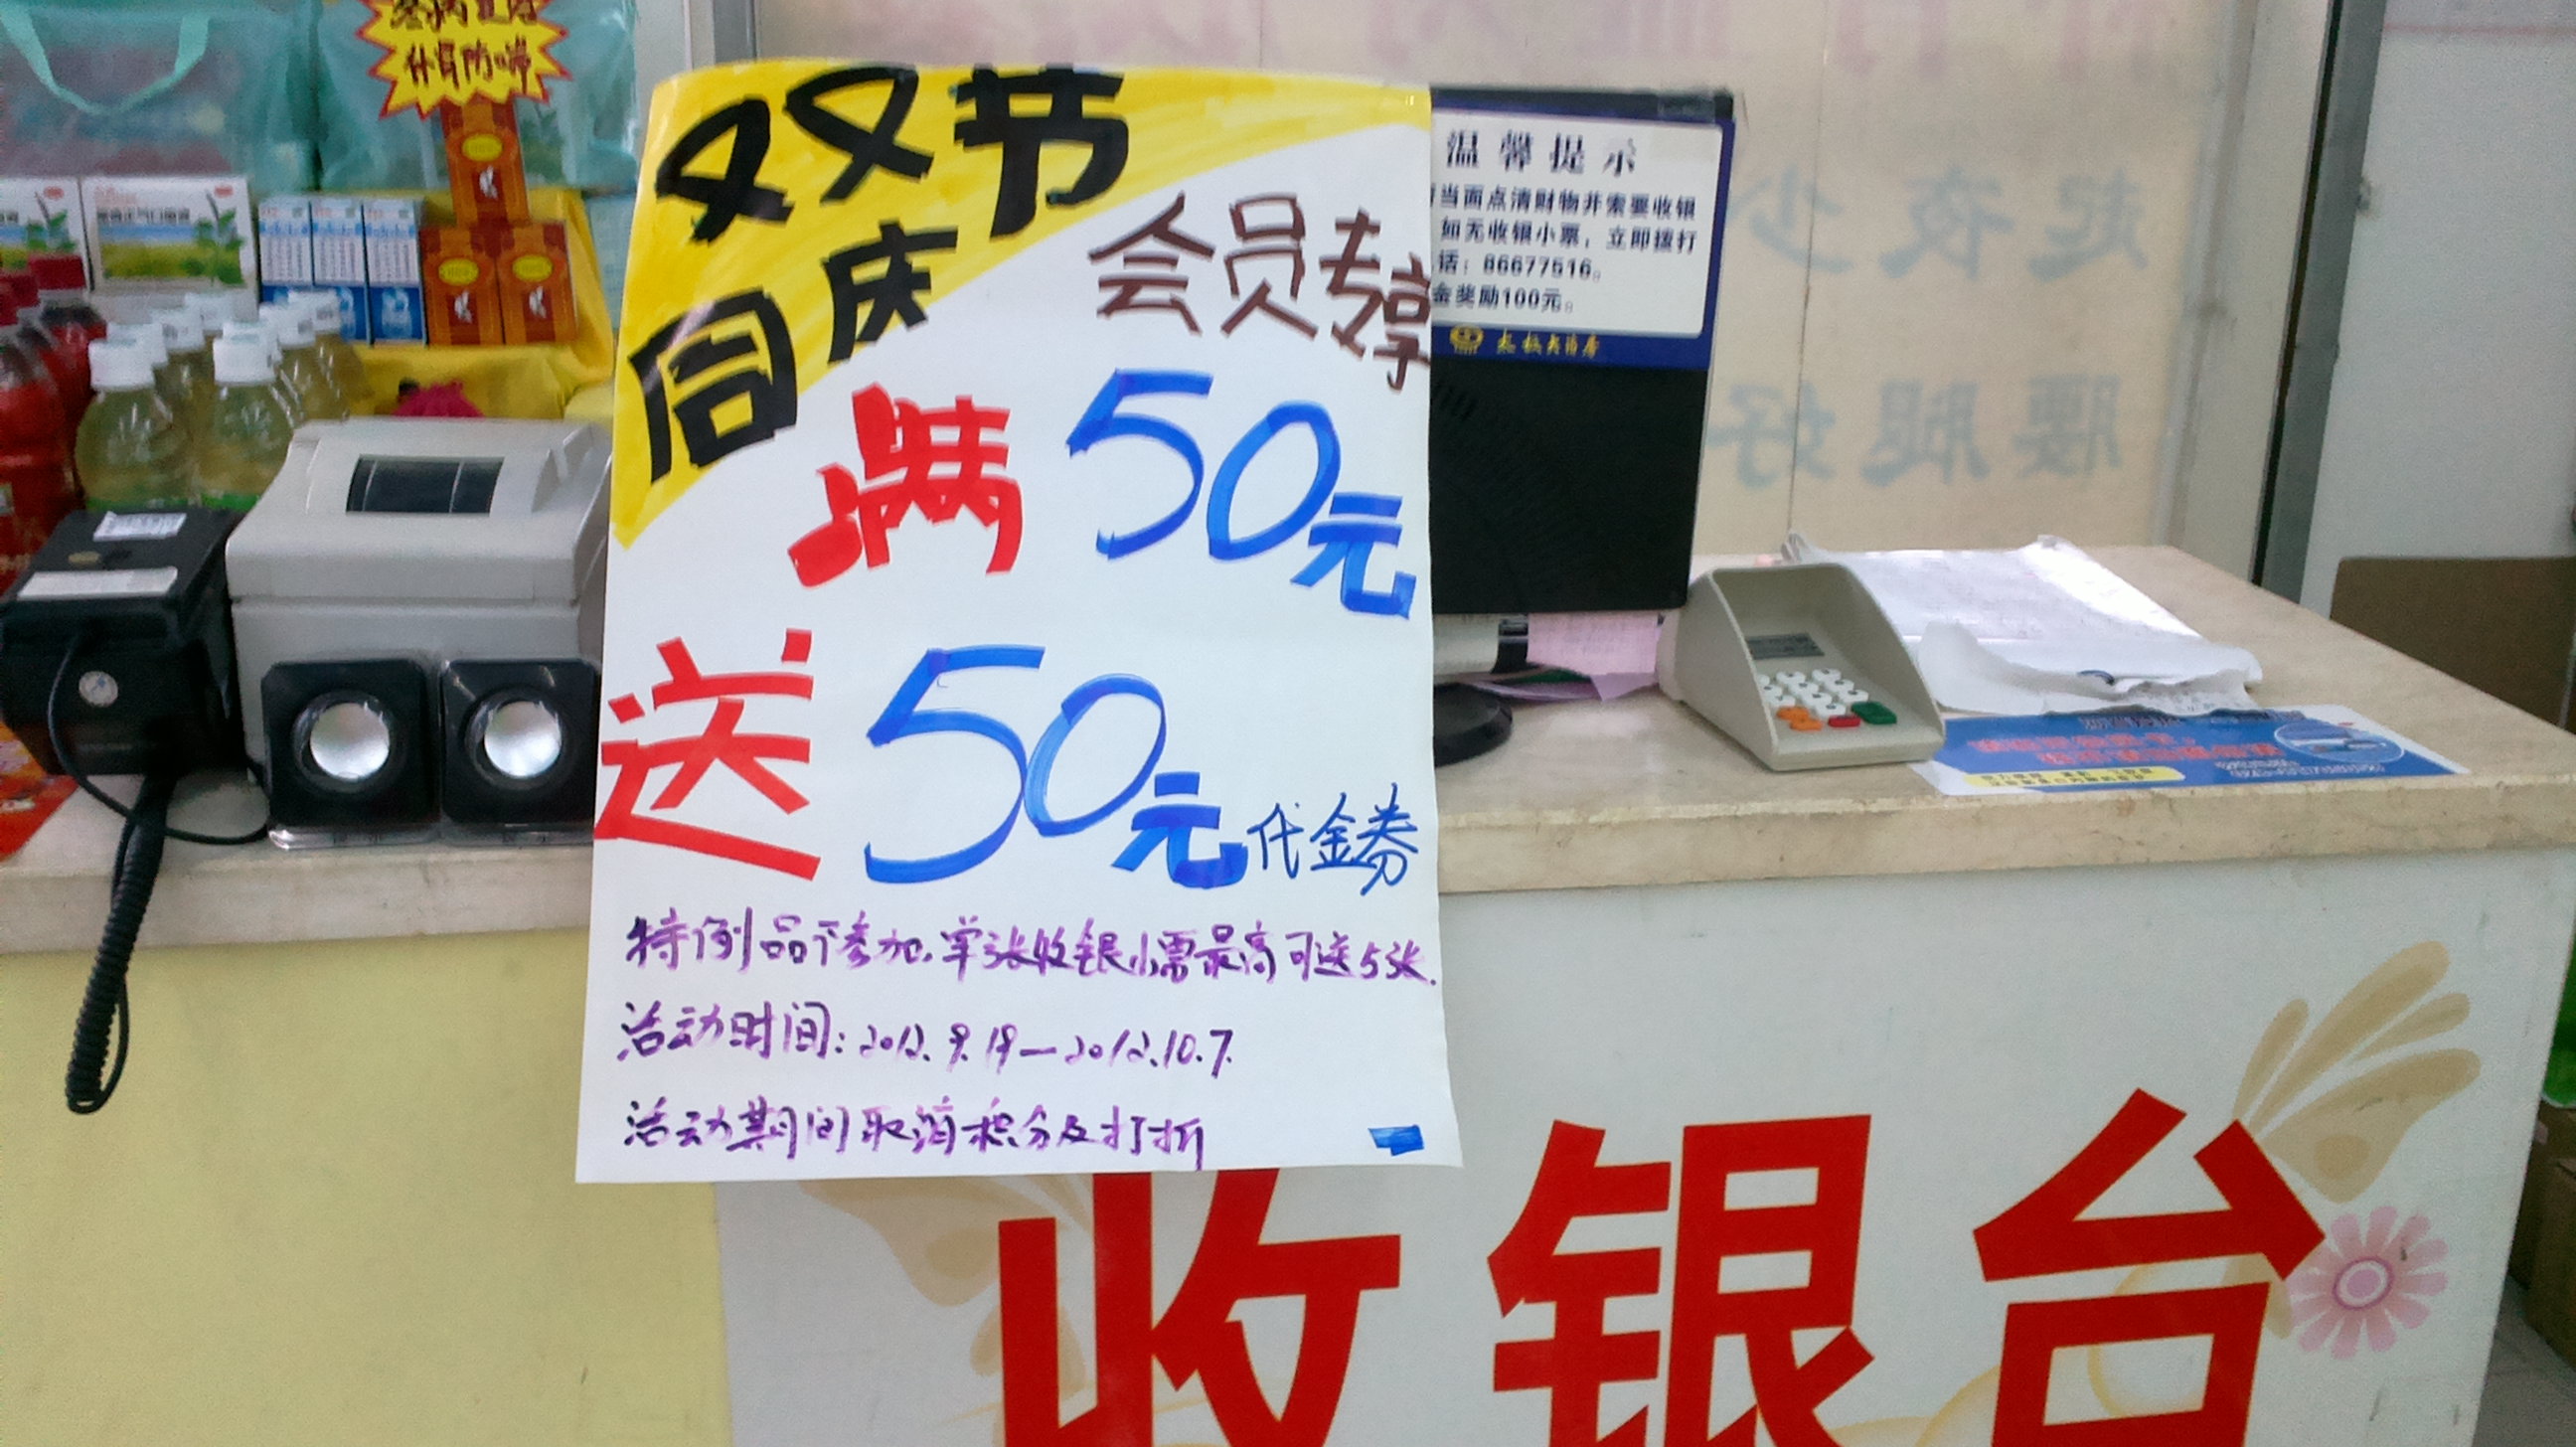 双节
同庆
会员专享
满50元
送50元代金券
特例品不参加,单张收银小票最高可送5张.
活动时间:2012.9.19—2012.10.7.
活动期间取消积分及打折
温馨提示
当面点清财物并索要收银
如无收银小票，立即拨打
话：86677516。
金奖励100元。
起夜少
腰腿好
收银台